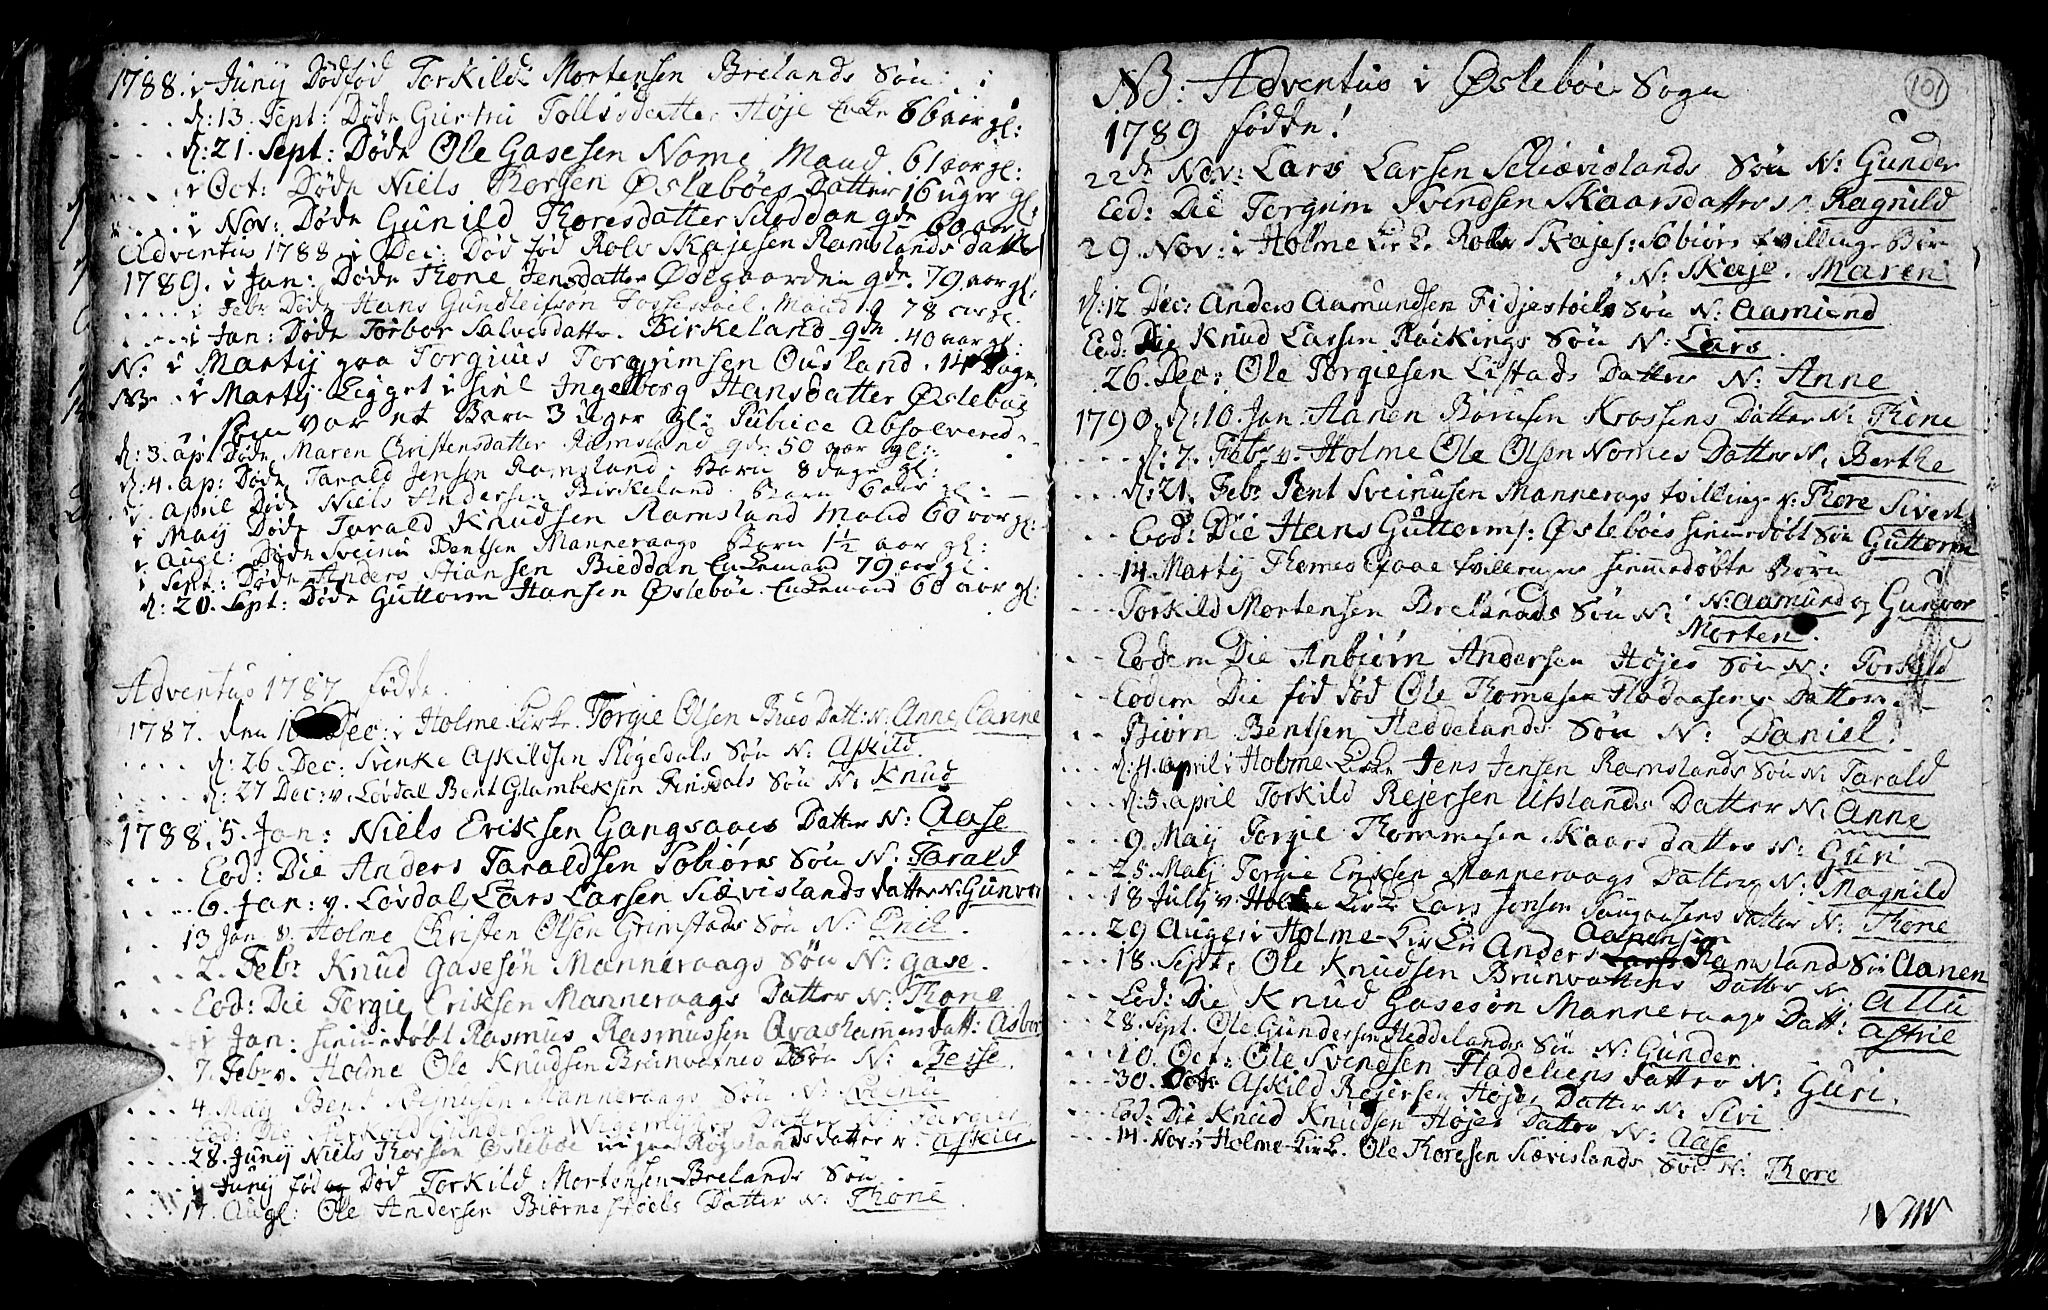 1788. i Juny Dødfød Torkild Mortensen Brelands Søn
d: 13. Sept: Døde Giertru Tollisdatter Høje Enke 66 aar gl:
d: 21. Sept: Døde Ole Gasesen Nome Mand 61 aar gl:
i Oct: Døde Niels Thorsen Øsleböes Datter 16 uger gl:
i Nov: Døde Gunild Thoresdatter Sloddan gdr 60 aar
Adventus 1788 i Dec: Død fød Rolv Skajesen Ramslands datter
1789. i Jan: Døde Thone Jensdatter Ødegaarden gdr. 79 aar gl:
i Febr Døde Hans Gundleifsøn Fossestøel Mand 78 aar gl.
i Jan: Døde Torbor Salvesdatter Birkeland gdr. 40 aar gl:
N: i Martij Torgius Torgrimsen Ousland. 14 Dage
NB i Martij Ligget i hiel Ingeborg Hansdatter Øsleböe
som var et Barn 3 uger gl: Publice Absolvered
d: 3. apl Døde Maren Christensdatter Ramsland gdr 50 aar gl:
d: 4. ap: Døde Tarald Jensen Ramsland. Barn 8 dage gl:
i April Døde Niels Andersen Birkeland. Barn 6 aar gl:
i Maij Døde Tarald Knudsen Ramsland Mand 60 aar gl:
i Augl: Døde Sveinu Bentsen Manneraags Barn 1½ aar gl:
i Sept: Døde Anders Stiansen Bieddan Enkemand 79 aar gl.
d: 20. Sept: Døde Guttorm Hansen Øsleböe Enkemand 60 aar gl:
Adventus 1787 fødte
1787. den Dec: i Holme Kirke. Torgie Olsen Bues Datt: N: Anne Carine
d: 26. Dec: Svenke Askildsen Røgedals Søn N: Askild
d: 27 Dec: v. Løvdal Bent Glambeksen Finsdals Søn N: Knud
1788. 5. Jan: Niels Eriksen Gangsaaes Datter N: Aase
Eod: Die Anders Taraldsen Tobiørs Søn N: Tarald
6. Jan: v. Løvdal Lars Larsen Siævislands datter N: Gunvor
13 Jan v. Holme Christen Olsen Grimstads Søn N:
2. Febr Knud Gasesøn Manneraags Søn N: Gase.
Eod: Die Torgie Eriksen Manneraags Datter N: Thone
i Jan: hiemedøbt Rasmus Rasmussen Qvashammers datt: Asbor
7. Febr v. Holme Ole Knudsen Brunvatnes Søn N:
4. Maij Bent Manneraags Søn N: Sveinu
Eod: Die Gundersen Datter N:
28. Juny Niels Thorsen Øsleböe datter N:
i Juny fød og Død Torkild Mortensen Brelands Søn
17. Augl: Ole Andersen Biørnestøels Datter N: Thone
101
NB: Adventus i Øsleböe Sogn
1789 fødte!
22de Nov: Lars Larsen Schiævislands Søn N: Gunder
Eod: Die Torgrim Svendsen Skaarsdatter N: Ragnild
29 Nov: i Holme Kirke Rolv Skajes: Tobiørs tvillinge Børn
N: Skaje. Maren
d: 12 Dec: Anders Aamundsen Fidjestøils Søn N: Aamund
Eod: Die Knud Larsen Røckings Søn N: Lars.
26. Dec: Ole Torgiesen Listads Datter N: Anne
1790. d: 10. Jan Aanen Børusen Krossens Datter N: Thone
d: 7. Febr v. Holme Ole Olsen Nomes Datter N: Berthe
d: 21. Febr Bent Sveinusen Manneraags tvilling N: Thore Sivert
Eod: Die Hans Guttorms: Øsleböes hiemedøbt Søn Guttorm
14. Martij Thomes tvillinger hiemmedøbte Børn
N: Aamund og Gunvor
Torkild Mortensen Brelands Søn N: Morten.
Eodem Die Anbiørn Andersen Højes Søn N: Torkild
Eodem Die fød død Ole Thommesen Flodaasens Datter.
Biørn Bentsen Heddelands Søn N: Daniel.
d: 4. april i Holme Kirke Jens Jensen Ramslands Søn N: Tarald
d: 5. april Torkild Rejersen Utslands Datter N: Anne
9. Maij Torgie Thommesen Skaars datter N: Guri
25. Maij Torgie Eriksen Manneraags Datter N: Magnild
18 July v. Holme Kirke Lars Jonsen datter N: Thone
29 Aug: i Holme Kirke Anders Aanensen Ramsland Søn Aanen
18. Sept: Ole Knudsen Brunvattens Datter N: Attu
Eod: Die Knud Gasesøn Manneraags Datt: Astrie
28. Sept. Ole Gundersen Heddelands Søn N: Gunder
10. Oct: Ole Svendsen Fladeliens datter N: Guri.
30. Oct: Askild Rejersen Højes Datter N: Sivi
Eod: Die Knud Knudsen Højes Datter N: Aase
14. Nov: i Holme Kirk. Ole Thoresen Siævislands Søn N: Thore